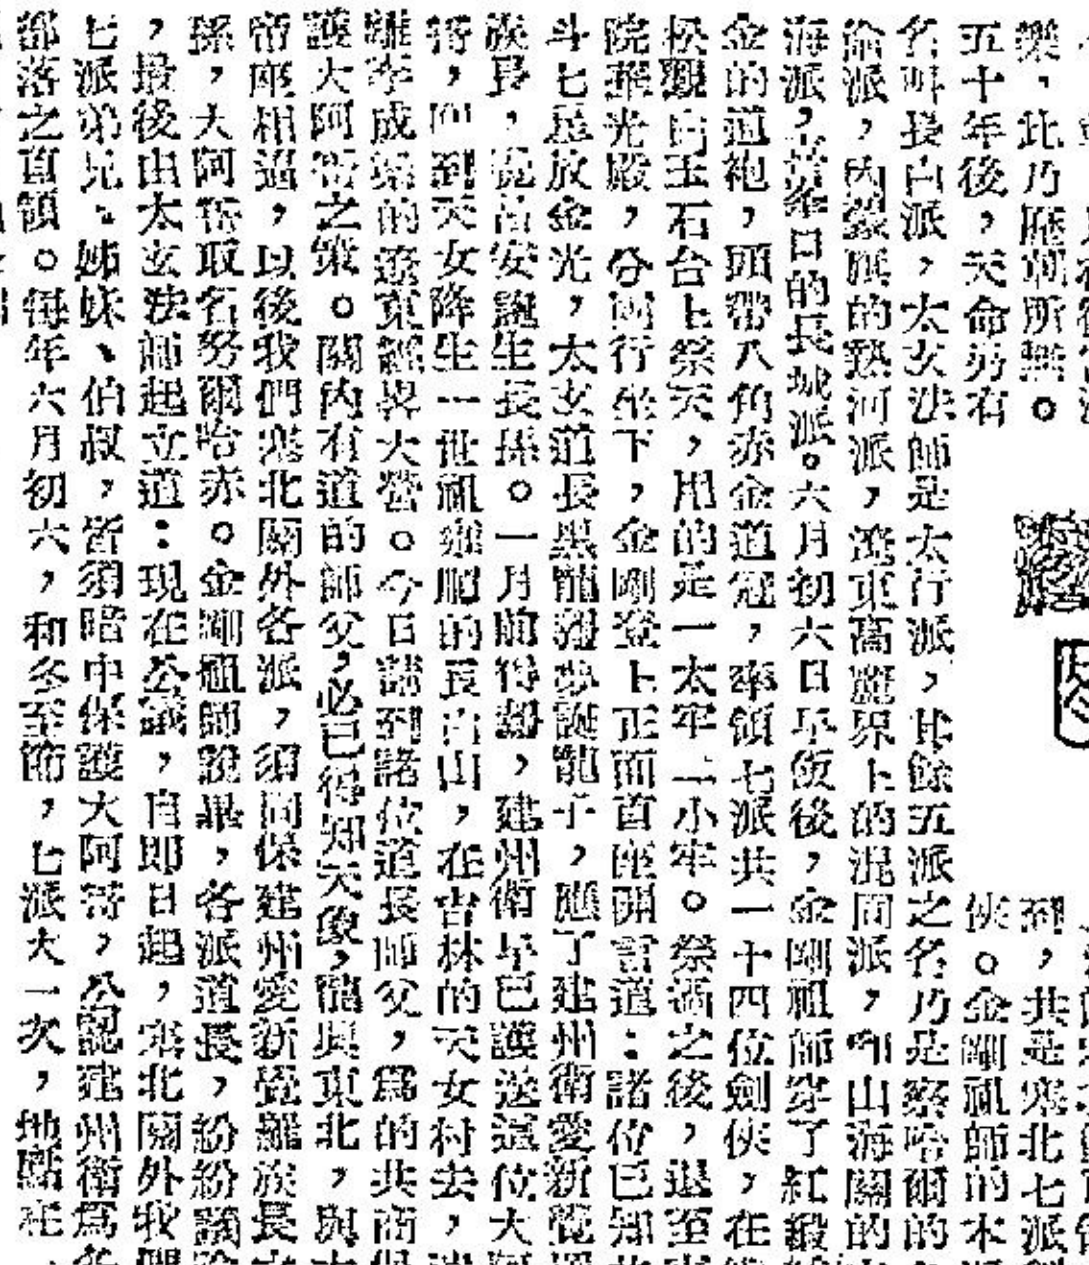 樂,此乃歷朝所無。
五十年後,天命另有
到,共是塞北七派
俠。金剛祖師的本
名叫長白派,太玄法師是太行派,其餘五派之名乃是察哈爾的
派,內蒙的熱河派,遼東高麗界上的混同派,和山海關的
海派,喜峯口的長城派。六月初六日早飯後,金剛祖師穿了紅緞
金的道袍,頭帶八角赤金道冠,率領七派共一十四位劍俠,在
松觀白玉石台上祭天,用的是一太牢二小牢。祭過之後,退至
院華光殿,分兩行坐下,金剛登上正面首座開言道:諸位已知
斗七星放金光,太玄道長黑龍潭夢誕龍子,應了建州衛愛新覺
族長,覺昌安誕生長孫。一月前得,建州衛早已護送這位大
哥,回到天女降生一世祖的長白山,在吉林的天女村去,
離李成樑的遼東經畧大營。今日請到諸位道長師父,爲的共商
護大阿哥之策。關內有道的師父,必已得知天象,龍興東北,與
帝座相逼,以後我們塞北關外各派,須同保建州愛新覺羅族長
孫,大阿哥取名努爾哈赤。金剛祖師說畢,各派道長,紛紛議論
,最後由太玄法師起立道:現在公議,自即日起,塞北關外我們
七派弟兄、姊妹、伯叔,皆須暗中保護大阿哥,公認建州衛爲
部落之直領。每年六月初六,和冬至節,七派大一次,地點在